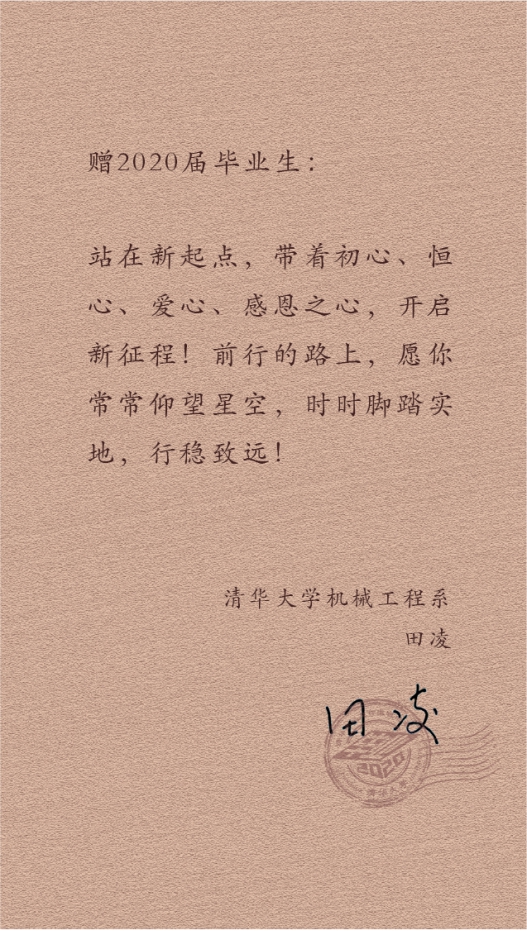 赠2020届毕业生：
站在新起点，带着初心、恒
心、爱心、感恩之心，开启
新征程！前行的路上，愿你
常常仰望星空，时时脚踏实
地，行稳致远！
清华大学机械工程系
田凌
田凌
2020
清华大学